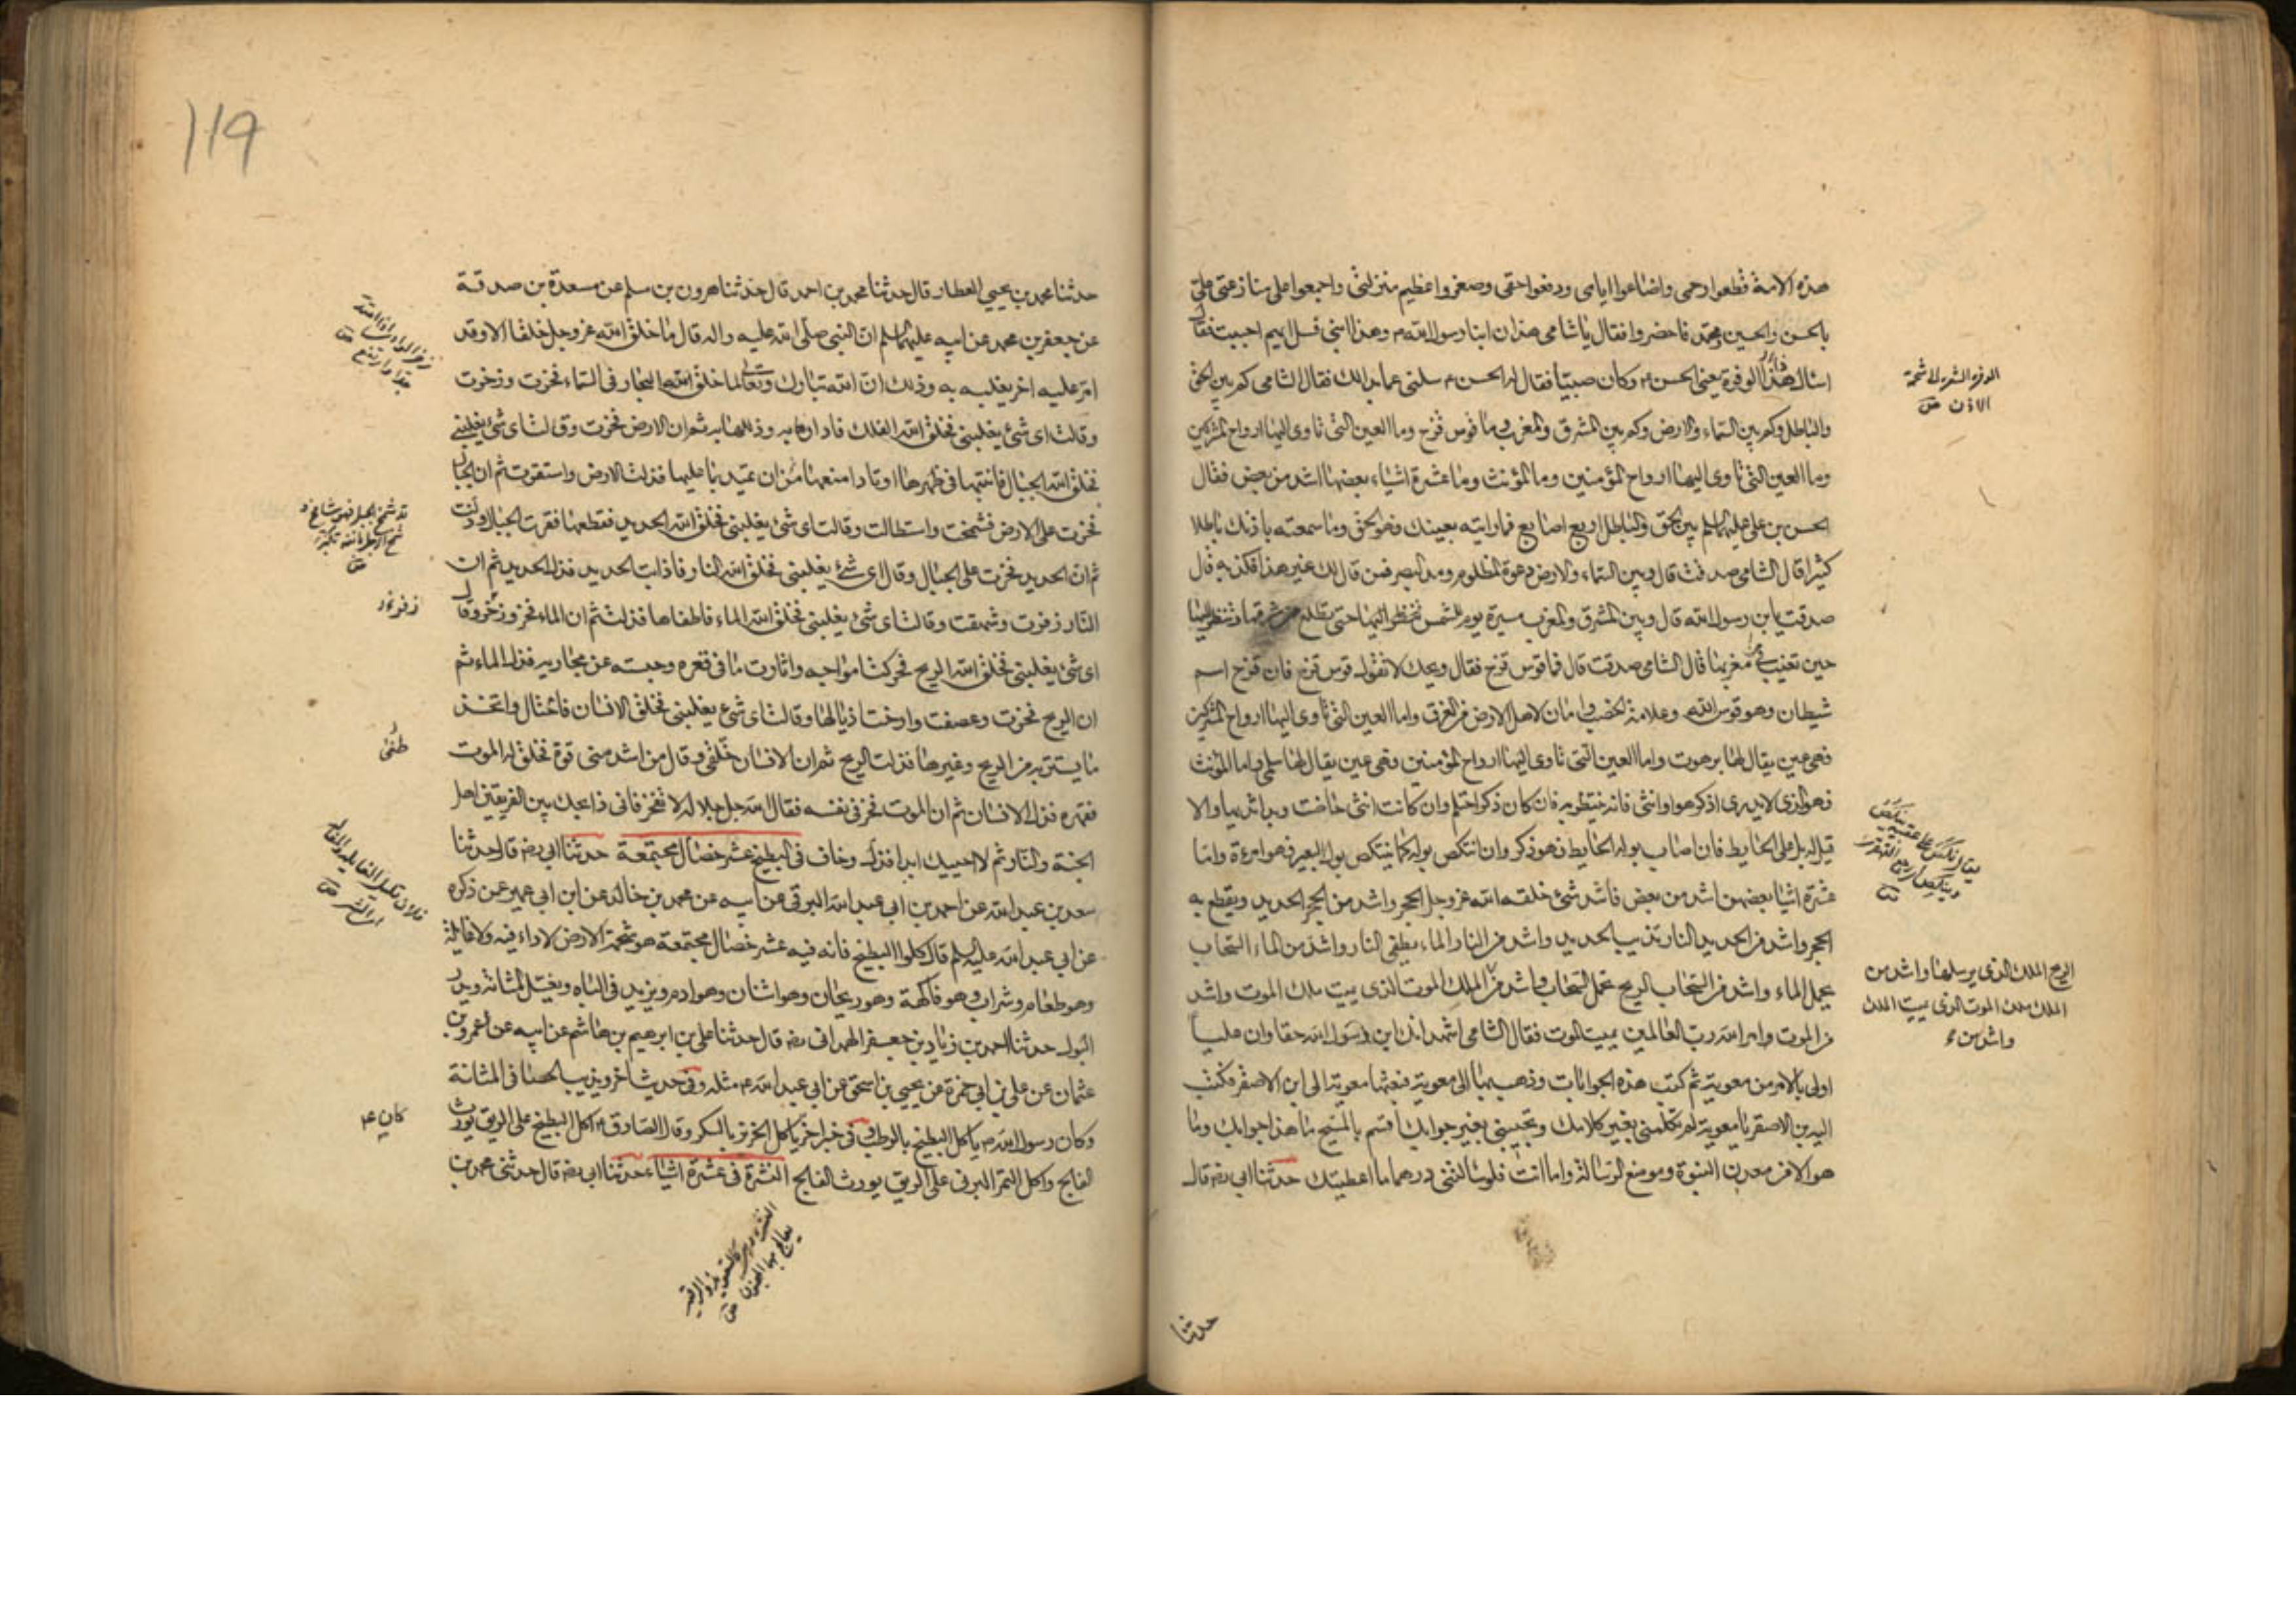 هذه الامة قطعوا رحمی واضاعوا ایامی ودفعوا حقی وصغروا عظیم منزلتی واجمعوا علی منازعتی علیّ
بالحسن والحسین ومحمّد فاحضروا فقال یا شامی هذان ابنا رسول الله وهذا ابنی فسل ایهم احببت فقال
اسال هذا ذا الوفرة یعنی الحسن ع وکان صبیّا فقال له الحسن ع سلنی عما بدا لك فقال الشامی کم بین الحق
والباطل وکم بین السماء والارض وکم بین المشرق والمغرب وما قوس قزح وما العین التی تاوی الیها ارواح المشرکین
وما العین التی تاوی الیها ارواح المؤمنین وما المؤنث وما عشرة اشیاء بعضها اشد من بعض فقال
الحسن بن علی علیهما السلم بین الحق والباطل اربع اصابع فما رایته بعینك فهو الحق وما سمعته باذنك باطلا
کثیرا قال الشامی صدقت قال وبین السماء والارض دعوة المظلوم ومد البصر فمن قال لك غیر هذا فکذبه قال
صدقت یا بن رسول الله قال وبین المشرق والمغرب مسیرة یوم للشمس تنظر الیها حتی تطلع من مشرقها وتنظر الیها
حین تغیب فی مغربها قال الشامی صدقت قال فما قوس قزح فقال ویحك لا تقول قوس قزح فان قزح اسم
شیطان وهو قوس الله وعلامة الخصب وامان لاهل الارض من الغرق واما العین التی تاوی الیها ارواح المشرکین
فهی عین یقال لها برهوت واما العین التی تاوی الیها ارواح المؤمنین فهی عین یقال لها سلمی واما المؤنث
فهو الذی لا یدری اذکر هو او انثی فانه ینتظر به فان کان ذکرا احتلم وان کانت انثی حاضت وبدا ثدیها والا
قیل له بل علی الحایط فان اصاب بوله الحایط فهو ذکر وان انتکص بوله کما ینتکص بول البعیر فهو امرءة واما
عشرة اشیا بعضهن اشد من بعض فاشد شئ خلقه الله عز وجل الحجر واشد من الحجر الحدید ویقطع به
الحجر واشد من الحدید النار تذیب الحدید واشد من النار الماء یطفی النار واشد من الماء السحاب
یحمل الماء واشد من السحاب الریح تحمل السحاب واشد من الملك الموت الذی یمیت ملك الموت واشد
من الموت وامر الله رب العالمین یمیت الموت فقال الشامی اشهد انك ابن رسول الله حقا وان علیا
اولی بالامر من معویة ثم کتب هذه الجوابات وذهب بها الی معویة فبعثها معویة الی ابن الاصفر فکتب
الیه بن الاصفر یا معویة لم تکلمنی بغیر کلامك وتجیبنی بغیر جوابك اقسم بالمسیح ما هذا جوابك وما
هو الا من معدن النبوة وموضع الرسالة واما انت فلو سالتنی درهما ما اعطیتك حدثنا ابی رضه قال
حدثنا
الوفرة الشعر الی شحمة
الاذن ص
الریح الملك الذی یرسلها واشد من
الملك ملك الموت الذی یمیت الملك
واشد من
119
حدثنا محمد بن یحیی العطار قال حدثنا محمد بن احمد قال حدثنا هرون بن مسلم عن مسعدة بن صدقة
عن جعفر بن محمد عن ابیه علیهما السلم ان النبی صلی الله علیه واله قال ما خلق الله عز وجل خلقا الا وقد
امر علیه اخر یغلبه به وذلك ان الله تبارك وتعالی لما خلق البحار فی السماء فخرت وزخرت
وقالت ای شئ یغلبنی فخلق الله الفلك فادارها به وذللها به ثم ان الارض فخرت وقالت ای شئ یغلبنی
فخلق الله الجبال فاثبتها فی ظهرها اوتادا منعها من ان تمید بما علیها فذلت الارض واستقرت ثم ان الجبال
فخرت علی الارض فشمخت واستطالت وقالت ای شئ یغلبنی فخلق الله الحدید فقطعها فقرت الجبال وذلت
ثم ان الحدید فخرت علی الجبال وقال ای شئ یغلبنی فخلق الله النار فاذابت الحدید فذل الحدید ثم ان
النار زفرت وشهقت وقالت ای شئ یغلبنی فخلق الله الماء فاطفاها فذلت ثم ان الماء فخر وزخر وقال
ای شئ یغلبنی فخلق الله الریح فحرکت امواجه واثارت ما فی قعره وحبسته عن مجاریه فذل الماء ثم
ان الریح فخرت وعصفت وارخت اذیالها وقالت ای شئ یغلبنی فخلق الانسان فاحتال واتخذ
ما یستتر به من الریح وغیرها فذلت الریح ثم ان الانسان طغی وقال من اشد منی قوة فخلق له الموت
فقهره فذل الانسان ثم ان الموت فخر فی نفسه فقال الله جل جلاله لا تفخر فانی ذابحك بین الفریقین اهل
الجنة والنار ثم لا احییك ابدا فذل وخاف فی البطیخ عشر خصال مجتمعة حدثنا ابی رضه قال حدثنا
سعد بن عبد الله عن احمد بن ابی عبد الله البرقی عن ابیه عن محمد بن خالد عن ابن ابی عمیر عن ذکره
عن ابی عبد الله علیه السلم قال کلوا البطیخ فانه فیه عشر خصال مجتمعة هو شحمة الارض لا داء فیه ولا غایلة
وهو طعام وشراب وهو فاکهة وهو ریحان وهو اشنان وهو ادم ویزید فی الباه ویغسل المثانة ویدر
البول حدثنا احمد بن زیاد بن جعفر الهمدانی رضه قال حدثنا علی بن ابرهیم بن هاشم عن ابیه عن عمرو بن
عثمان عن علی بن ابی حمزة عن یحیی بن اسحق عن ابی عبد الله ع مثله وفی حدیث اخر ویذیب الحصا فی المثانة
وکان رسول الله ص یاکل البطیخ بالرطب وفی خبر اخر یاکل الخربز بالسکر وقال الصادق ع اکل البطیخ علی الریق یورث
الفالج واکل التمر البرنی علی الریق یورث الفالج النشرة فی عشرة اشیاء حدثنا ابی رضه قال حدثنی محمد بن
طغی
کان ع